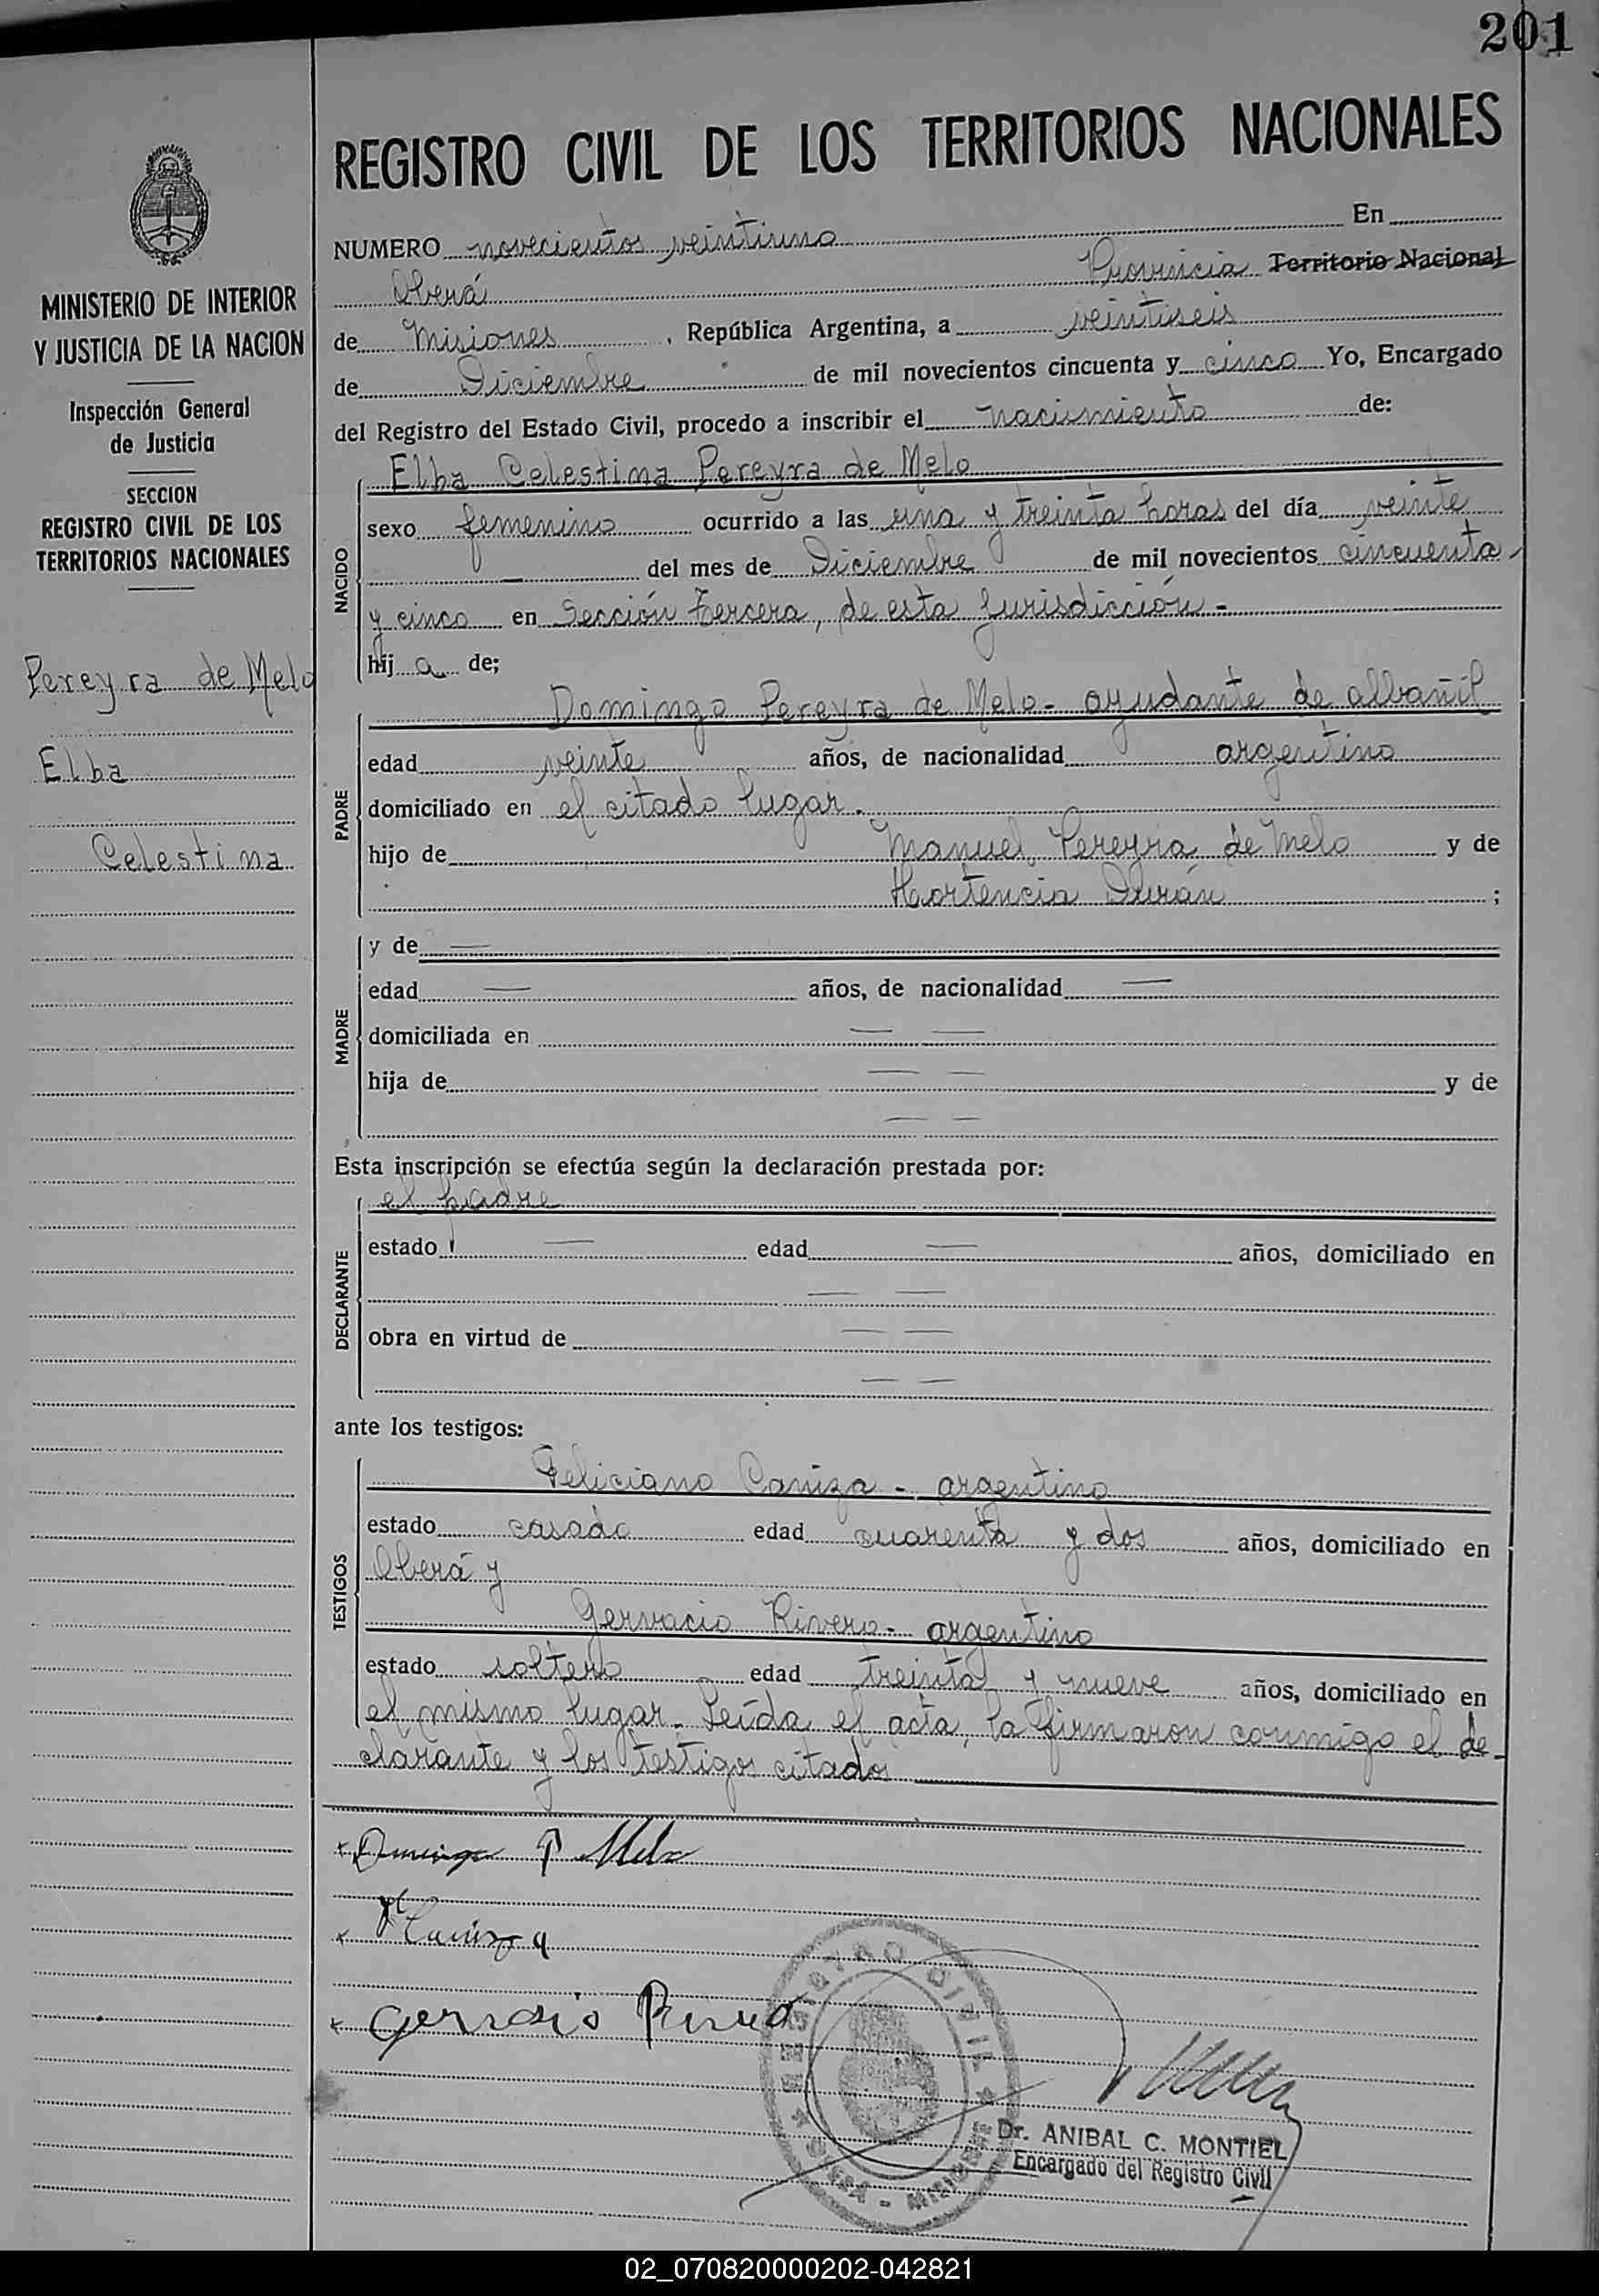 201
REGISTRO CIVIL DE LOS TERRITORIOS NACIONALES
MINISTERIO DE INTERIOR
Y JUSTICIA DE LA NACION
Inspección General
de Justicia
SECCION
REGISTRO CIVIL DE LOS
TERRITORIOS NACIONALES
Pereyra de Melo
Elba
Celestina
NUMERO novecientos veintiuno En
Oberá Provincia Territorio Nacional
de Misiones, República Argentina, a veintiseis
de Diciembre de mil novecientos cincuenta y cinco Yo, Encargado
del Registro del Estado Civil, procedo a inscribir el nacimiento de:
NACIDO
Elba Celestina Pereyra de Melo
sexo femenino ocurrido a las una y treinta horas del día veinte
— del mes de Diciembre de mil novecientos cincuenta
y cinco en Sección Tercera, de esta Jurisdicción.-
hija de;
PADRE
Domingo Pereyra de Melo- ayudante de albañil
edad veinte años, de nacionalidad argentino
domiciliado en el citado lugar.
hijo de Manuel Pereyra de Melo y de
Hortencia Durán ;
MADRE
y de —
edad — años, de nacionalidad —
domiciliada en — —
hija de — — y de
— —
Esta inscripción se efectúa según la declaración prestada por:
DECLARANTE
el padre
estado — edad — años, domiciliado en
— —
obra en virtud de — —
— —
ante los testigos:
TESTIGOS
Feliciano Caniza - argentino
estado casado edad cuarenta y dos años, domiciliado en
Oberá y
Gervacio Rivero- argentino
estado soltero edad treinta y nueve años, domiciliado en
el mismo lugar. Leída el acta, la firmaron conmigo el de-
clarante y los testigos citados
x Domingo P Melo
x F Caniza
x Gervasio Rivero
REGISTRO CIVIL
OBERA - MISIONES
Dr. ANIBAL C. MONTIEL
Encargado del Registro Civil
02_070820000202-042821